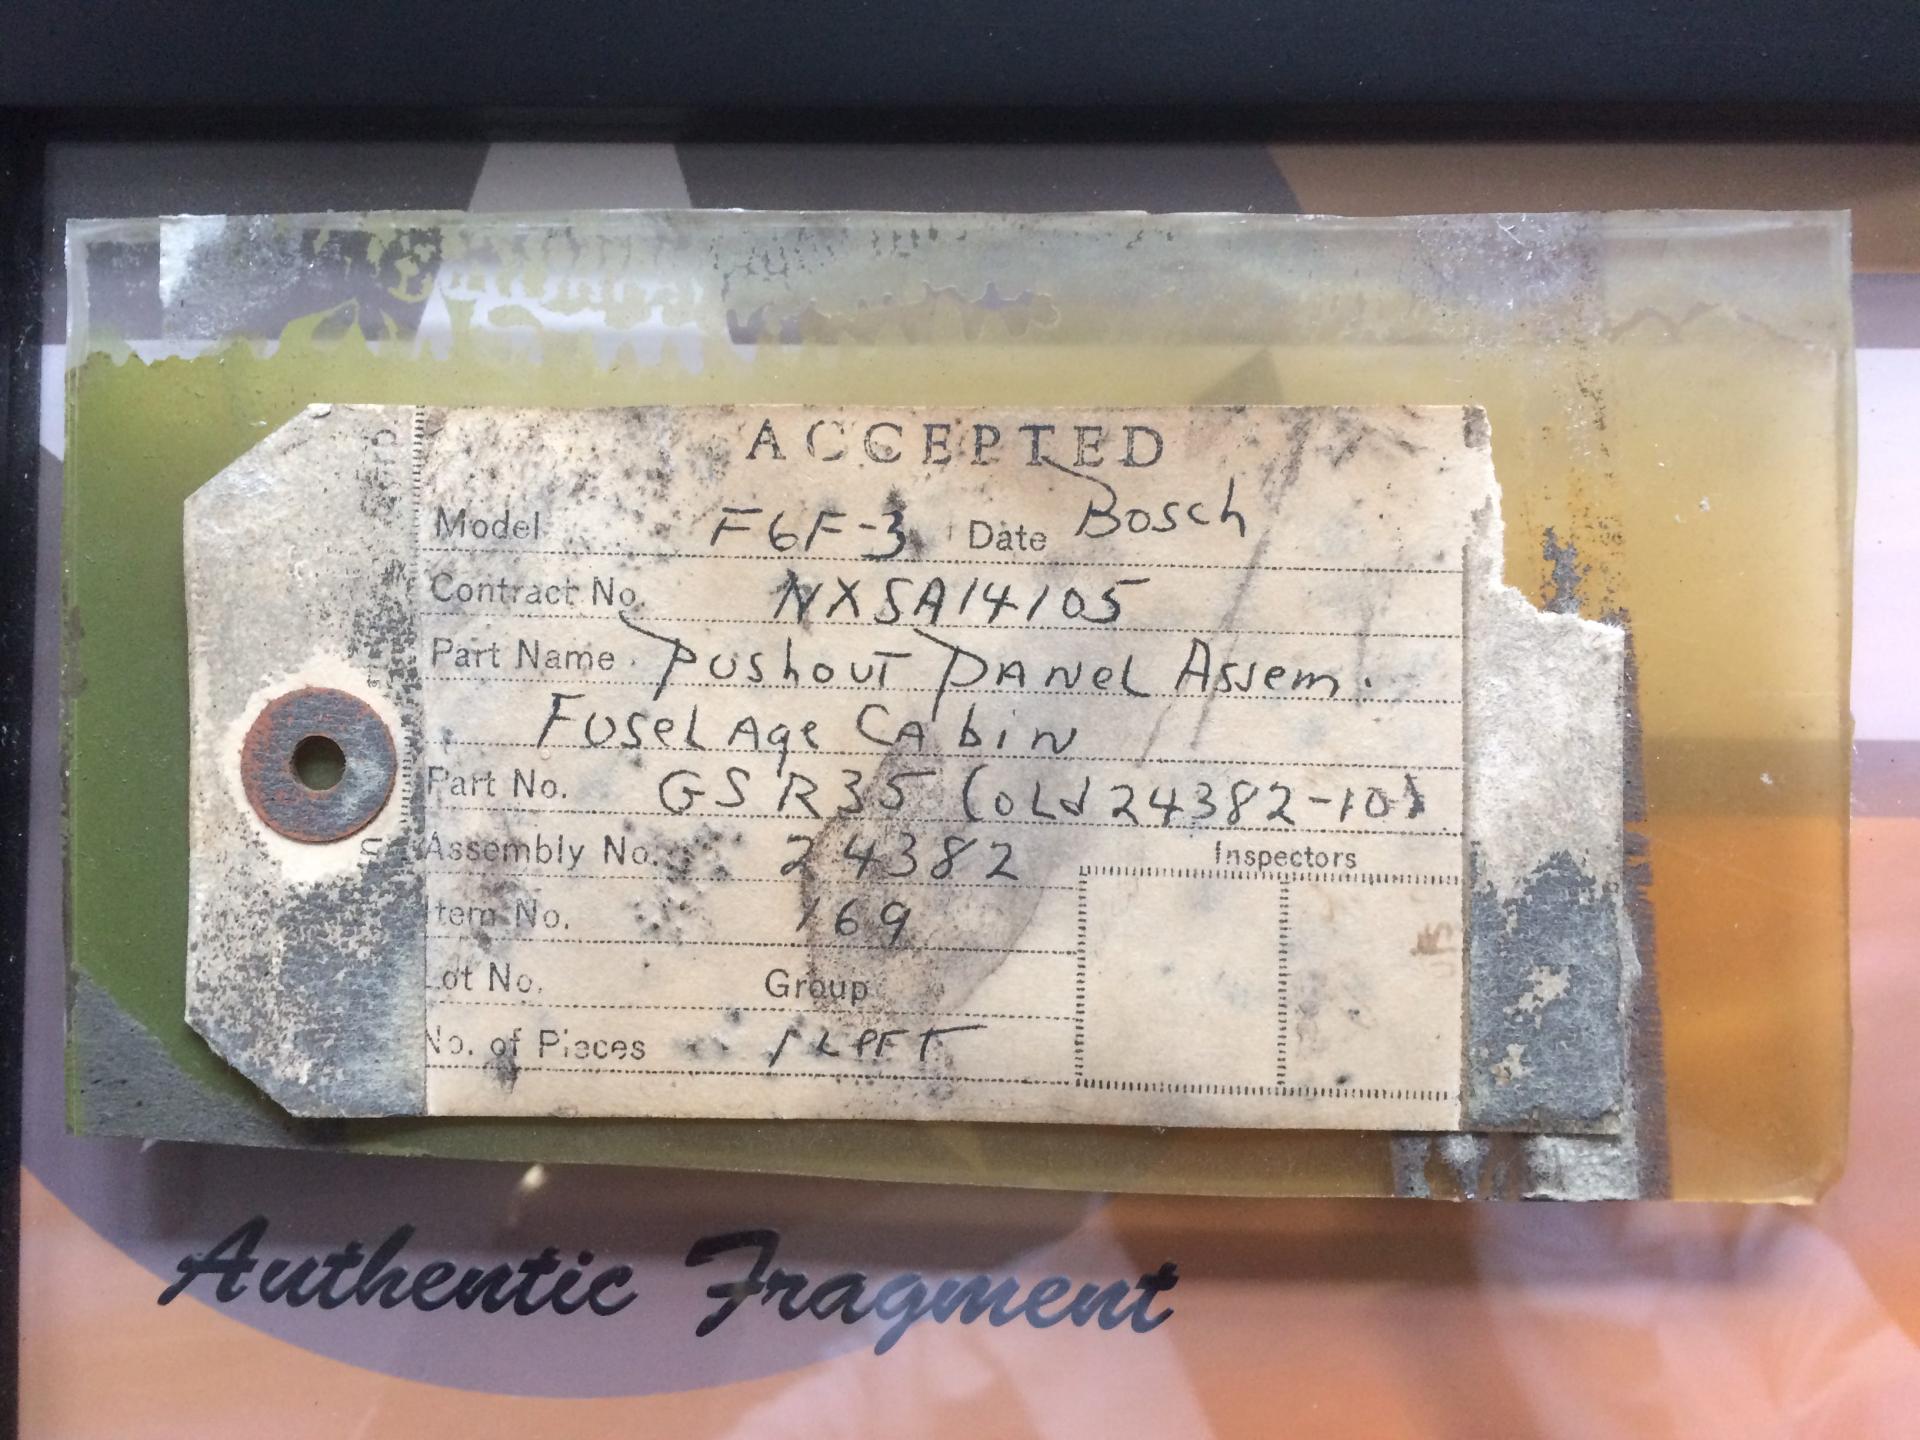 ACCEPTED
Model F6F-3 Date Bosch
Contract No. NXSA14105
Part Name Pushout PANeL Assem.
FuseL Age CAbin
Part No. GSR35 (oLd 24382-10)
Assembly No. 24382
Inspectors
Item No. 169
Lot No. Group
No. of Pieces 1 LPFT
Authentic Fragment